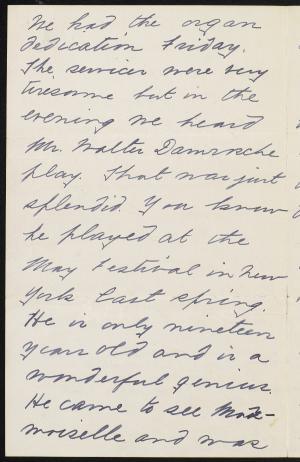 We had the organ
dedication Friday.
The services were very
tiresome but in the
evening we heard
Mr. Walter Damrosche
play. That was just
splendid. You know
he played at the
May Festival in New
York last spring.
He is only nineteen
years old and is a
wonderful genius.
He came to see Made-
moiselle and was